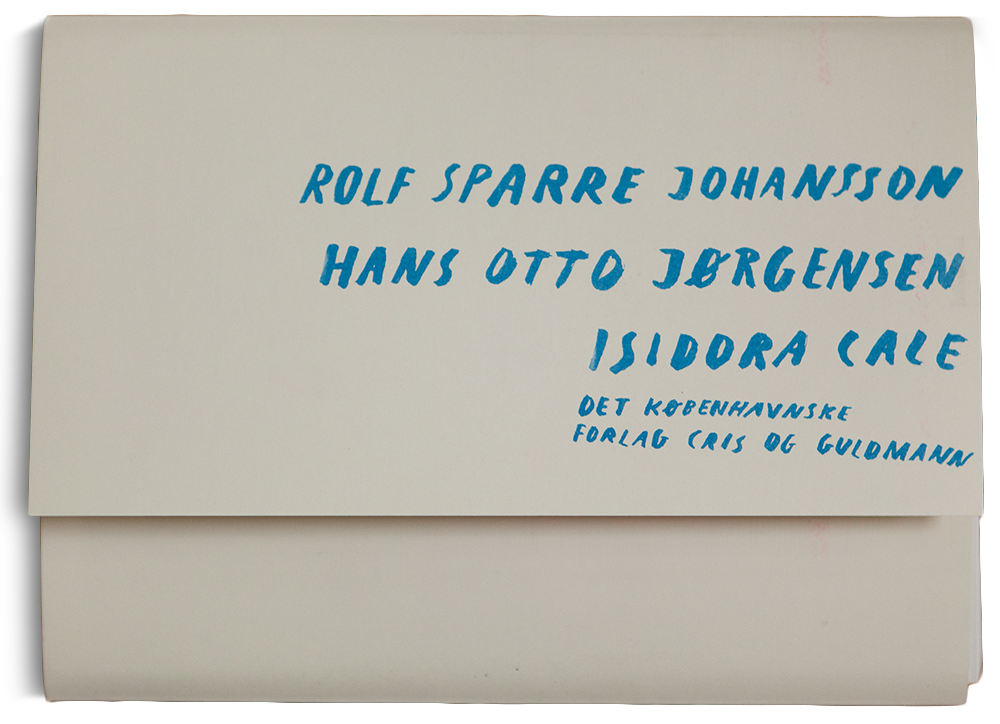 ROLF SPARRE JOHANSSON
HANS OTTO JØRGENSEN
ISIDORA CALE
DET KØBENHAVNSKE
FORLAG CRIS OG GULDMANN